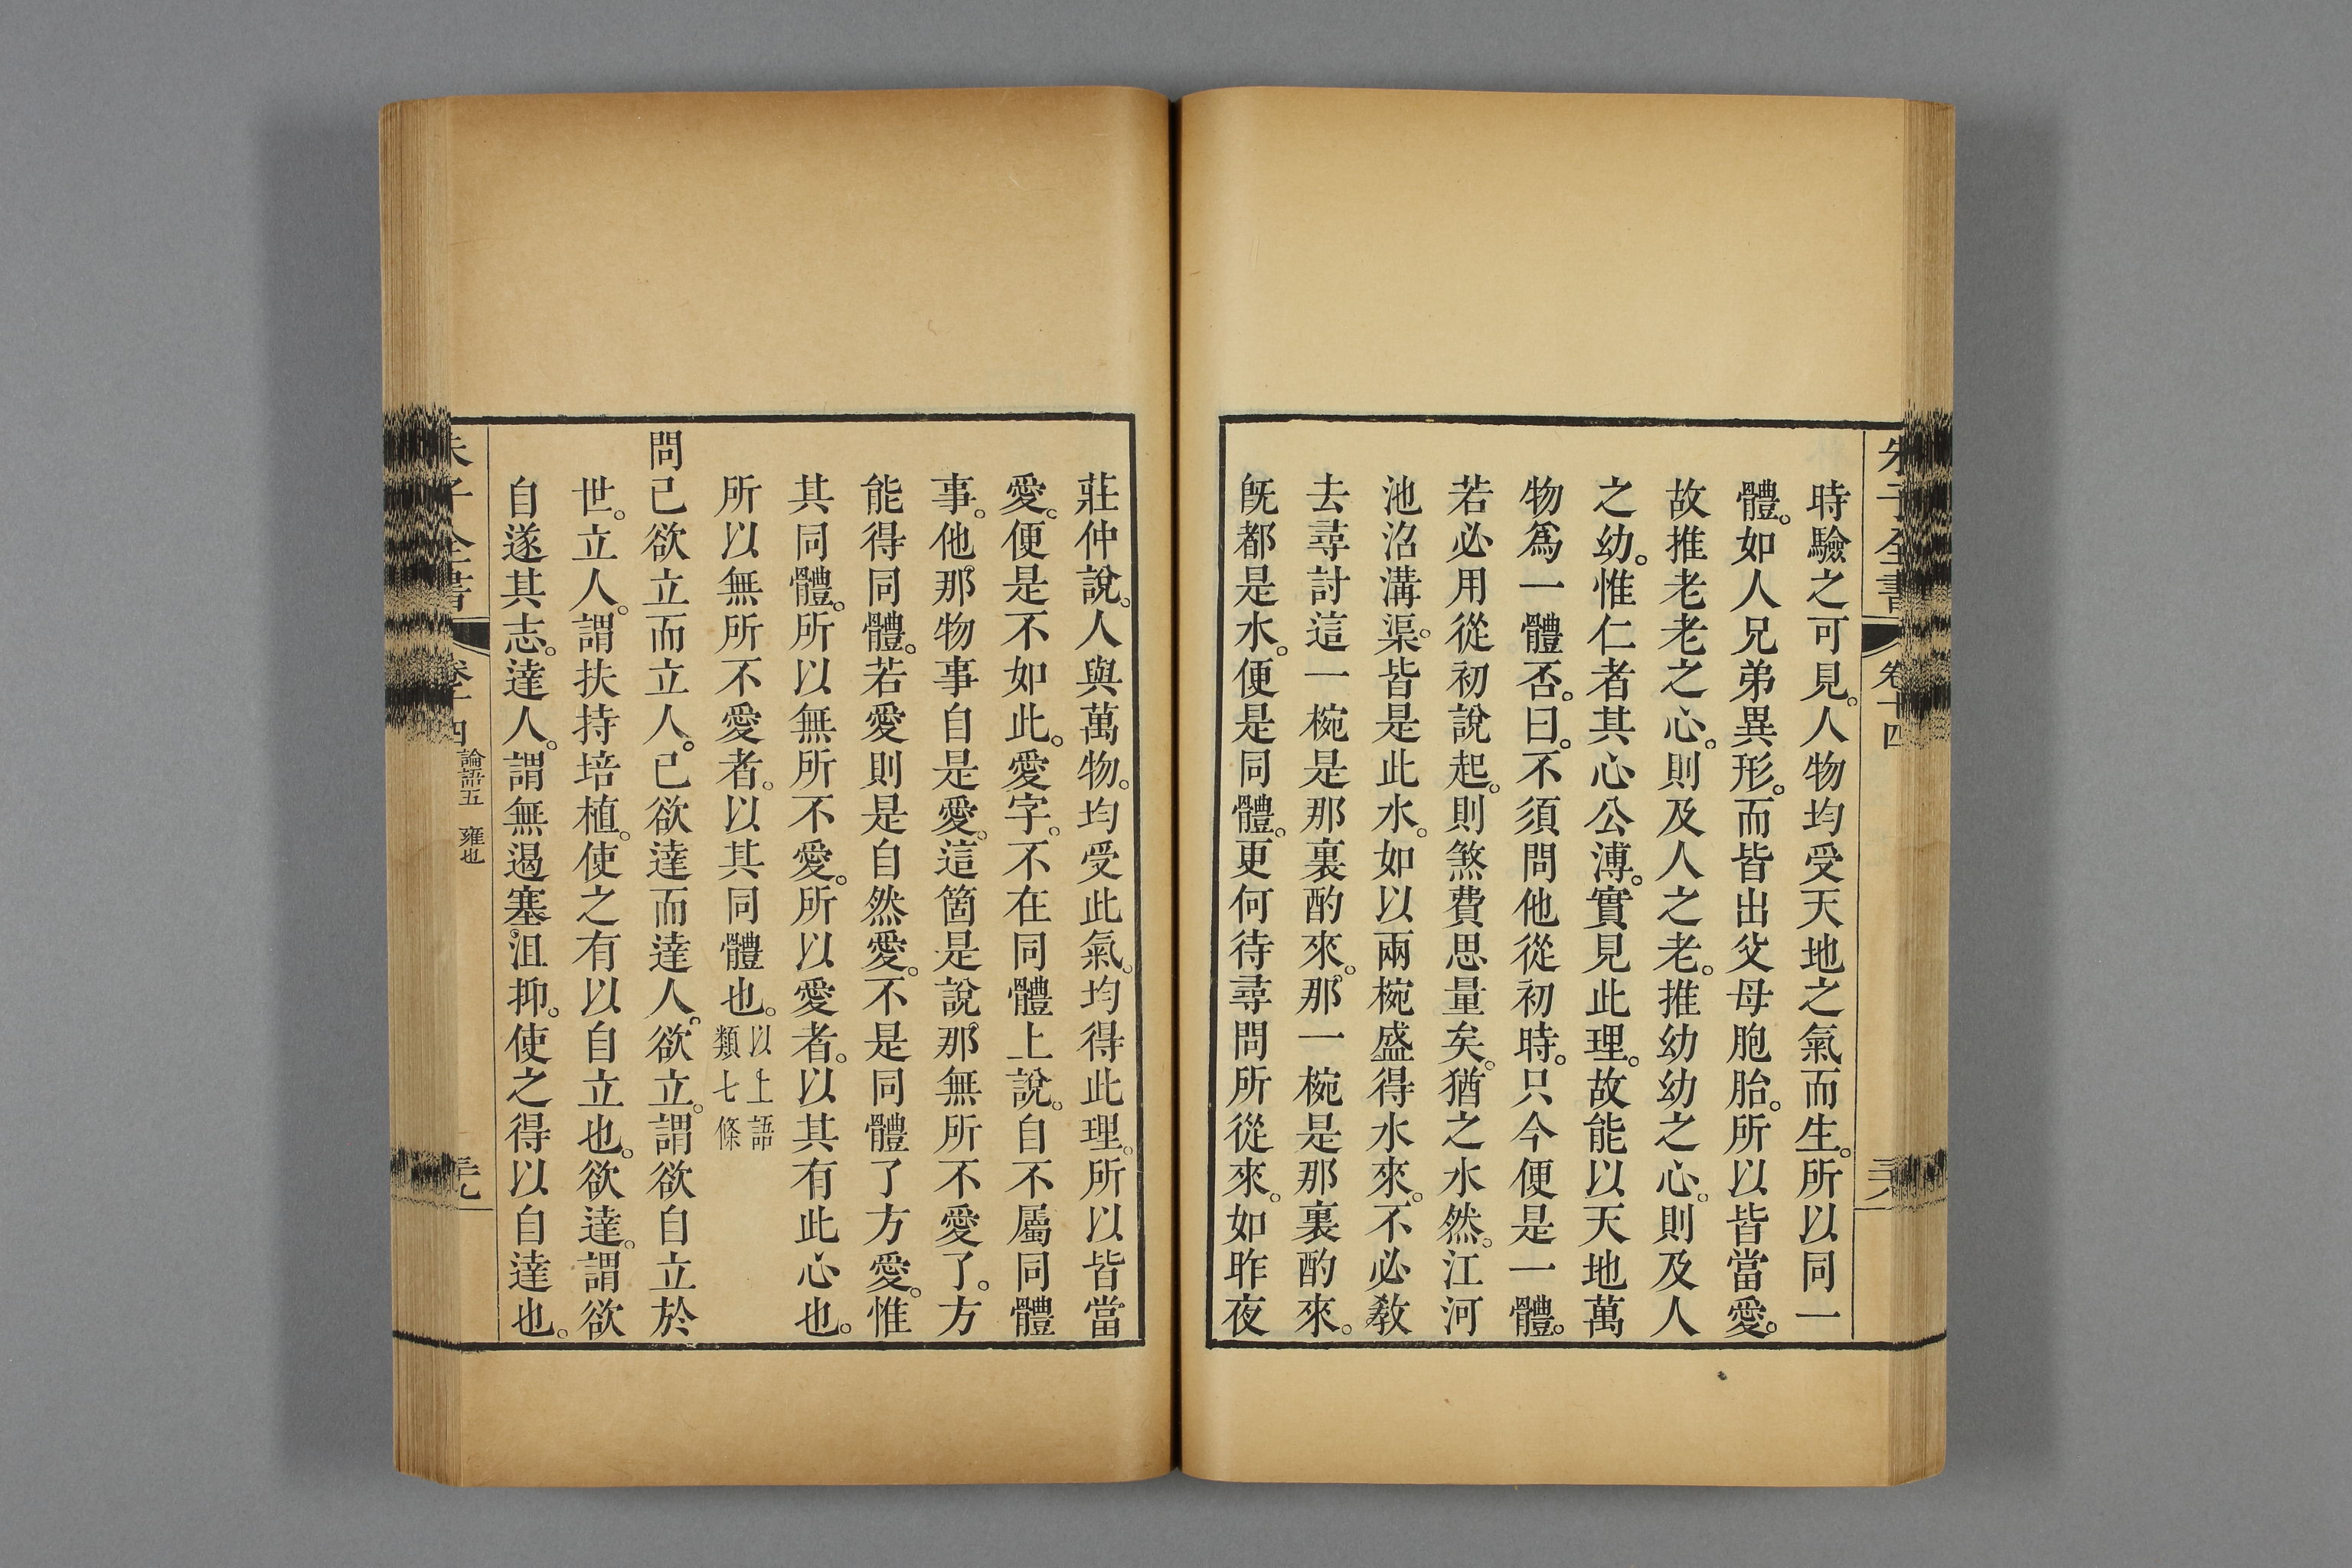 朱子全書 卷十四
時驗之可見。人物均受天地之氣而生。所以同一
體。如人兄弟異形。而皆出父母胞胎。所以皆當愛。
故推老老之心。則及人之老。推幼幼之心。則及人
之幼。惟仁者其心公溥。實見此理。故能以天地萬
物爲一體否。曰。不須問他從初時。只今便是一體。
若必用從初說起。則煞費思量矣。猶之水然。江河
池沼溝渠。皆是此水。如以兩椀盛得水來。不必敎
去尋討這一椀是那裏酌來。那一椀是那裏酌來。
旣都是水。便是同體。更何待尋問所從來。如昨夜
莊仲說。人與萬物。均受此氣。均得此理。所以皆當
愛。便是不如此。愛字。不在同體上說。自不屬同體
事。他那物事自是愛。這箇是說那無所不愛了。方
能得同體。若愛則是自然愛。不是同體了方愛。惟
其同體。所以無所不愛。所以愛者。以其有此心也。
所以無所不愛者。以其同體也。以上語類七條
問己欲立而立人。己欲達而達人。欲立。謂欲自立於
世。立人。謂扶持培植。使之有以自立也。欲達。謂欲
自遂其志。達人。謂無遏塞。沮抑。使之得以自達也。
朱子全書 卷十四 論語五 雍也